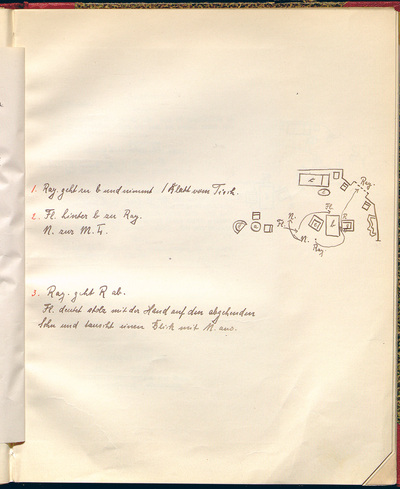 1. Ray. geht zu b und nimmt 1 Blatt vom Tisch.
2. Fl. hinter b zu Ray.
N. zur M.
3. Ray. geht R ab.
Fl. deutet stolz mit der Hand auf den abgehenden
Sohn und tauscht einen Blick mit N. aus.
Ray.
Fl.
N.
Fl.
b
R
N.
Ray